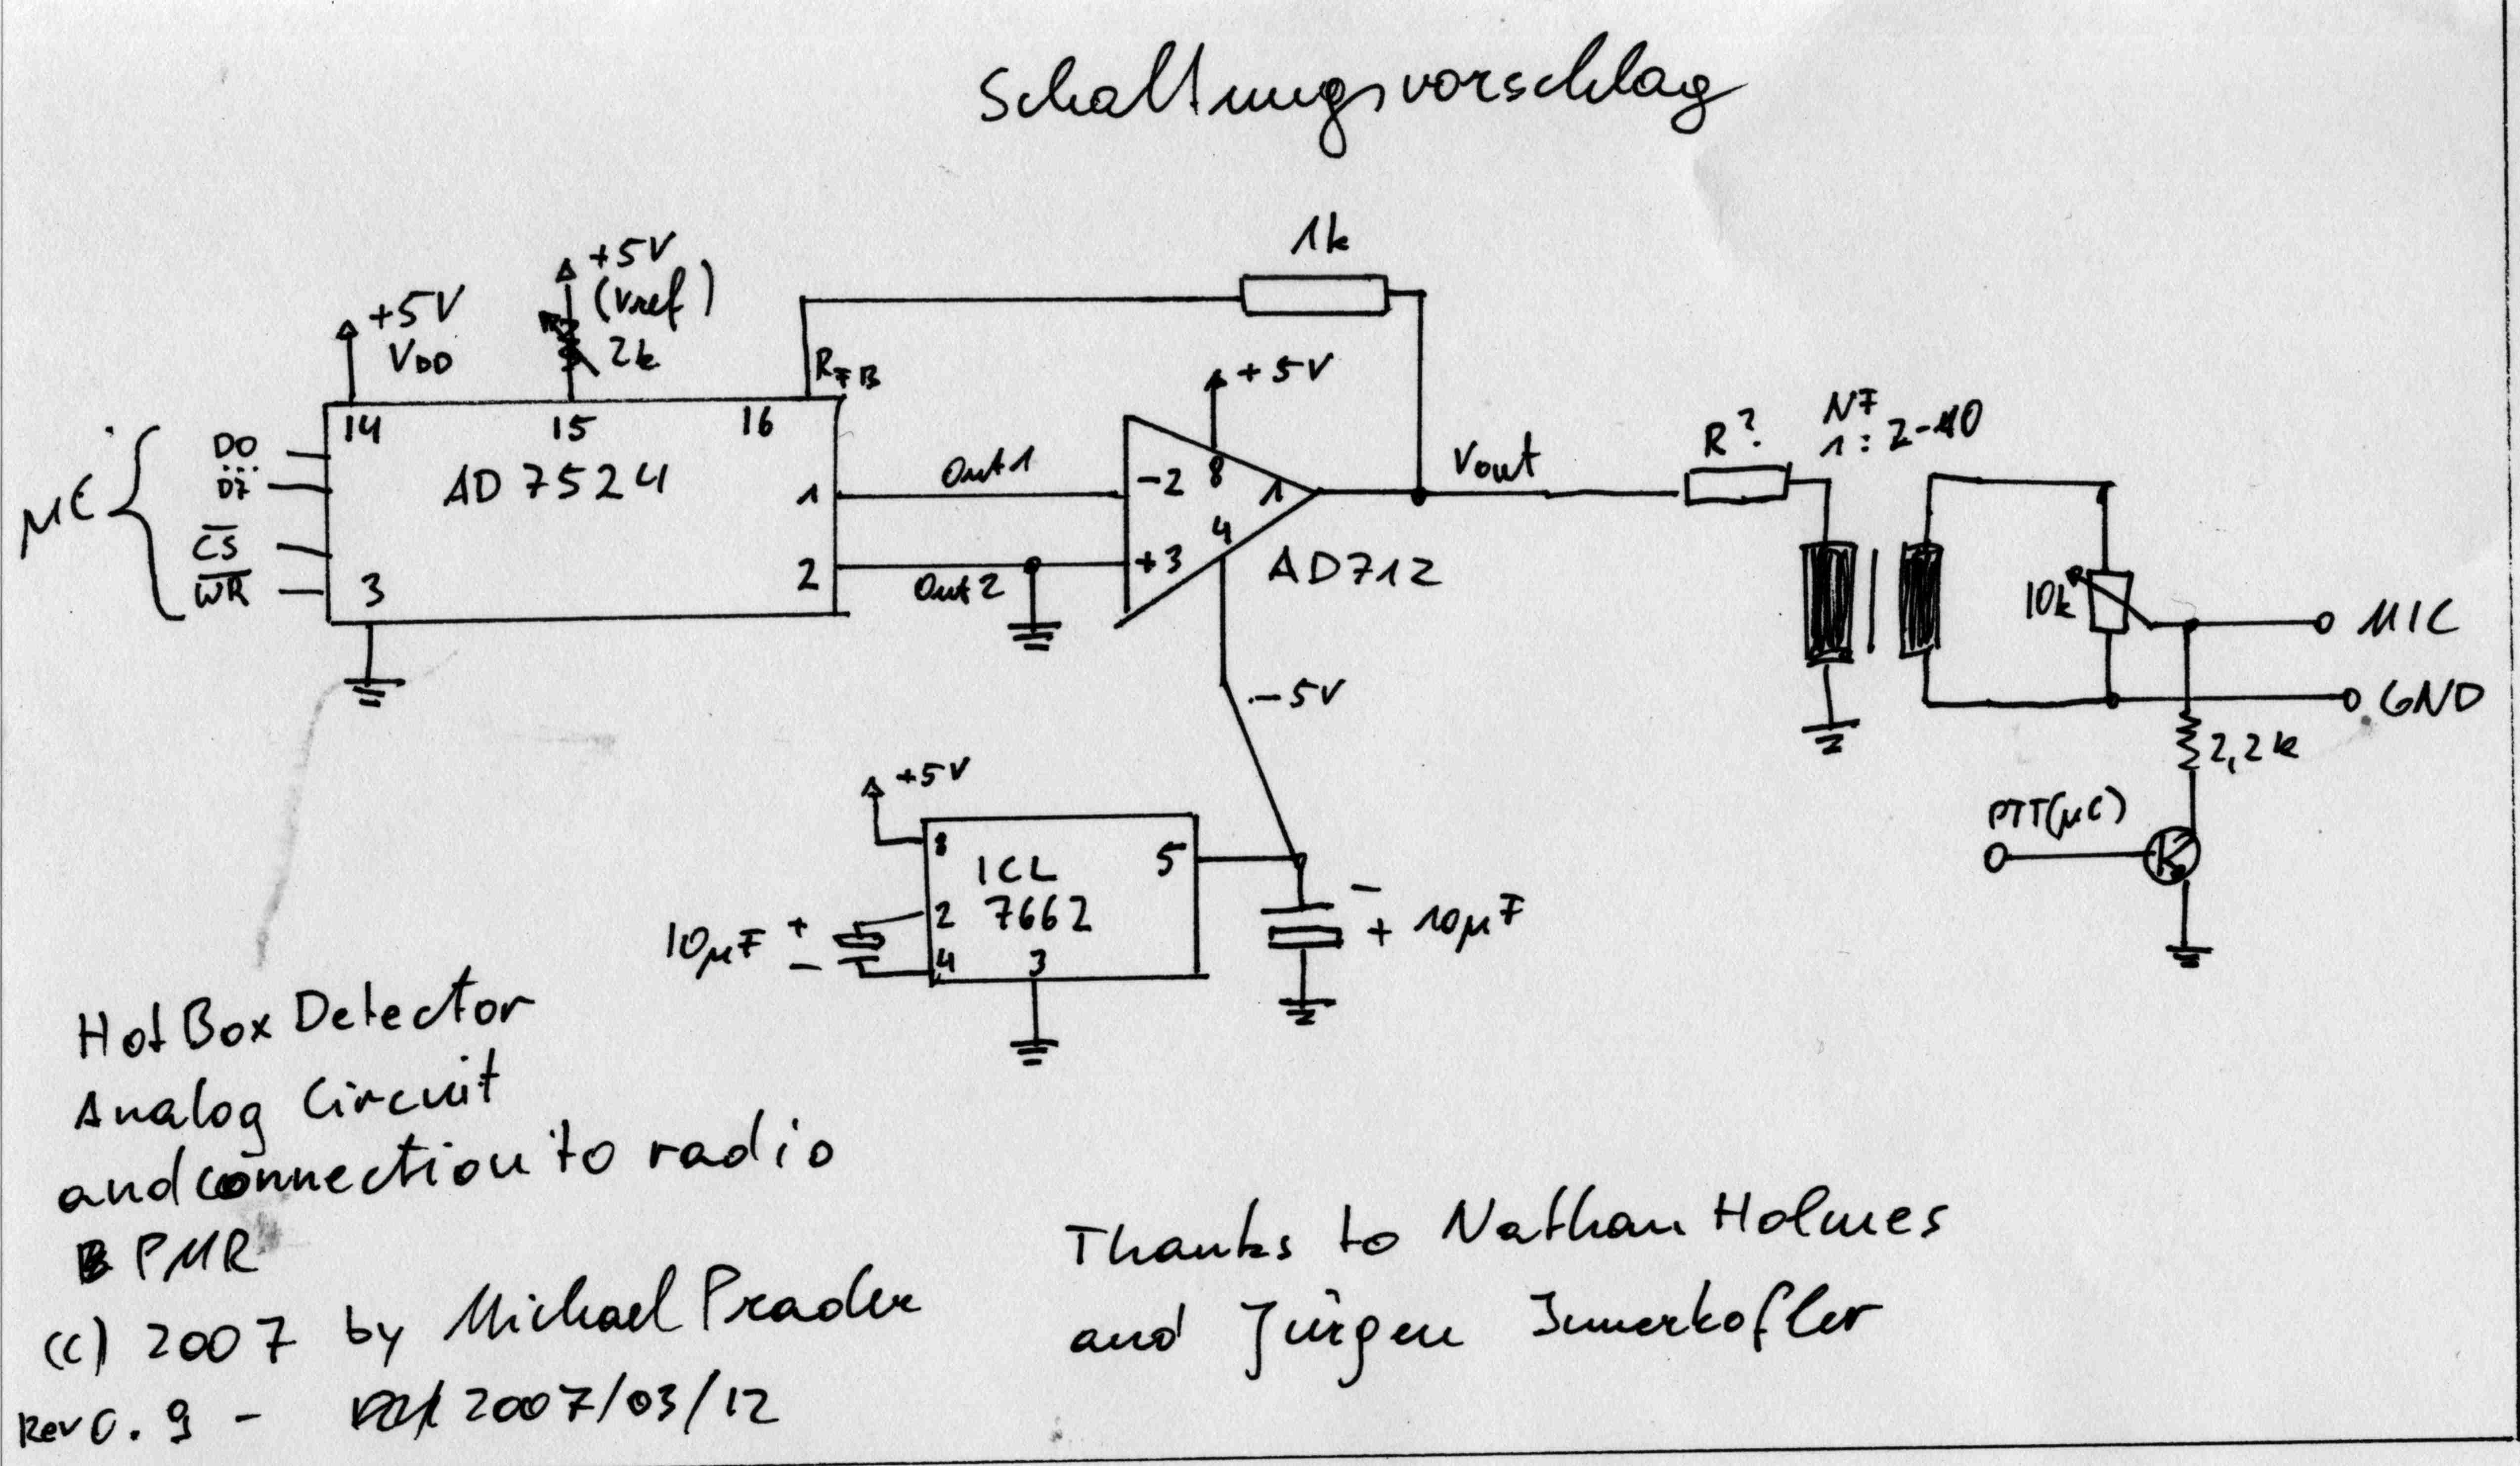 Schaltungsvorschlag
1k
+5V
(Vref)
2k
+5V
VDD
RFB
14
15
16
AD 7524
µC
D0
...
D7
CS
WR
3
1
2
Out1
Out2
+5V
-2
8
1
4
+3
AD712
Vout
R?
NF
1:2-10
10k
MIC
GND
2,2k
PTT(µC)
-5V
+5V
8
ICL
7662
5
2
4
3
10µF
+
-
-
+ 10µF
Hot Box Detector
Analog Circuit
and connection to radio
PMR
(c) 2007 by Michael Prader
Rev 0.9 - 2007/03/12
Thanks to Nathan Holmes
and Jürgen Innerkofler